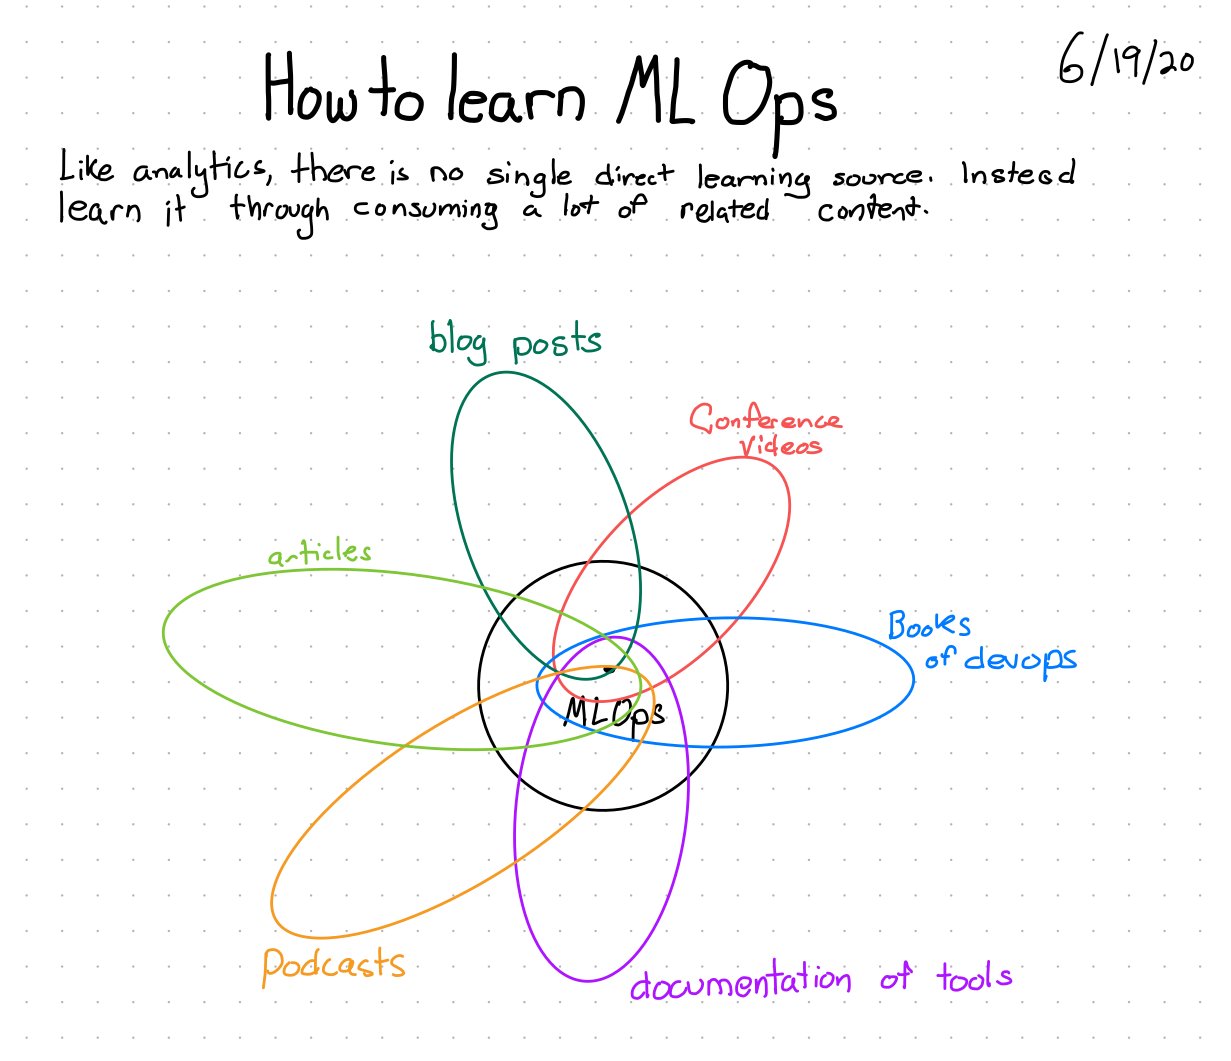 How to learn ML Ops
6/19/20
Like analytics, there is no single direct learning source. Instead
learn it through consuming a lot of related content.
blog posts
Conference
Videos
articles
Books
of devops
MLOps
Podcasts
documentation of tools